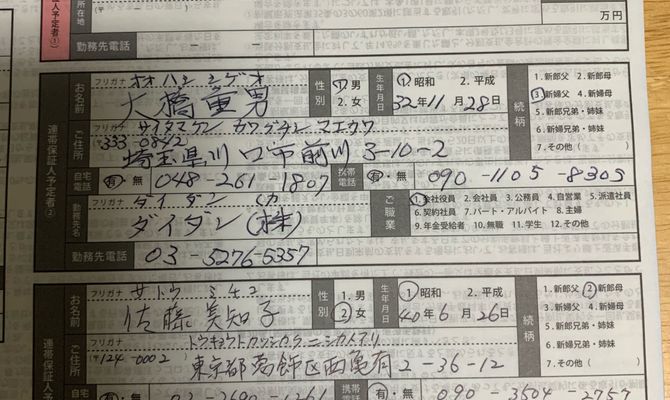 所在地
(〒 -
万円
勤務先電話 - -
連帯保証人予定者②
フリガナ オオハシ シゲオ
お名前 大橋重男
性別 1. 男 2. 女
生年月日 1. 昭和 2. 平成
32年11月28日
続柄
1. 新郎父 2. 新郎母
3. 新婦父 4. 新婦母
5. 新郎兄弟・姉妹
6. 新婦兄弟・姉妹
7. その他 ( )
フリガナ サイタマケン カワグチシ マエカワ
ご住所 (〒333-0842)
埼玉県川口市前川3-10-2
自宅電話 有・無 048-261-1807
携帯電話 有・無 090-1105-8305
フリガナ ダイダン (カ
勤務先名 ダイダン(株)
ご職業
1. 会社役員 2. 会社員 3. 公務員 4. 自営業 5. 派遣社員
6. 契約社員 7. パート・アルバイト 8. 主婦
9. 年金受給者 10. 無職 11. 学生 12. その他
勤務先電話 03-5276-5357
フリガナ サトウ ミチコ
お名前 佐藤美知子
性別 1. 男 2. 女
生年月日 1. 昭和 2. 平成
40年6月26日
続柄
1. 新郎父 2. 新郎母
3. 新婦父 4. 新婦母
5. 新郎兄弟・姉妹
6. 新婦兄弟・姉妹
7. その他 ( )
フリガナ トウキョウトカツシカクニシカメアリ
ご住所 (〒124-0002
東京都葛飾区西亀有2-36-12
連帯保証人予定者
自宅 有・無 03-3690-1261
携帯 有・無 090-3504-2757